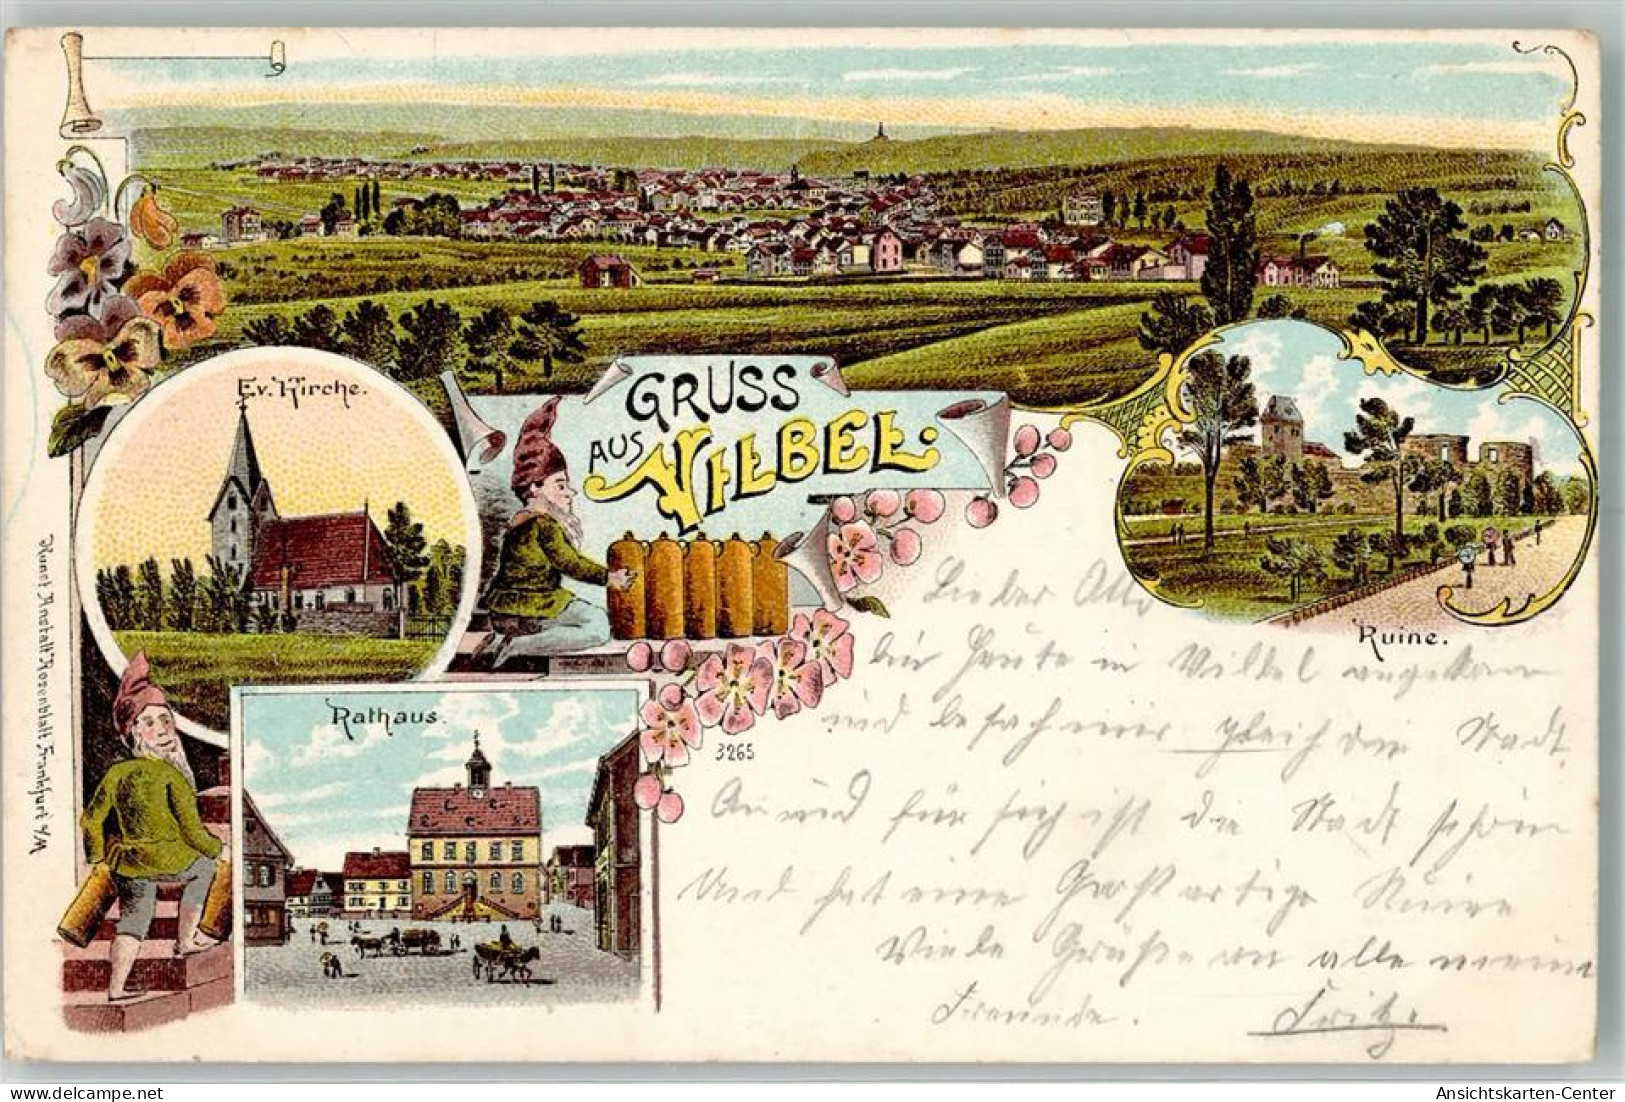 Ev. Kirche.
GRUSS
AUS VILBEL.
Ruine.
Rathaus.
3265
Kunst Anstalt Rosenblatt Frankfurt a/M
Lieber Otto
bin Heute in Vilbel angekom
und besah mir gleich die Stadt
An und für sich ist die Stadt schön
Und hat eine Großartige Ruine
Viele Grüße an alle meine
Freunde. Fritz.
delcampe.net
Ansichtskarten-Center